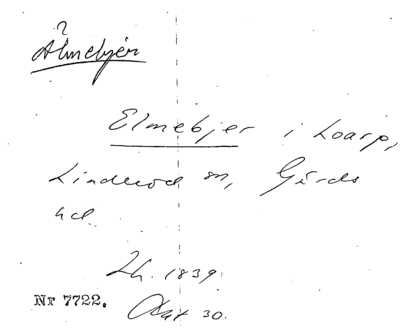 ?
Älmebjer
Elmebjer i Loarp,
Linderöd sn, Gärds
hd.
Lh. 1839.
Nr 7722. Akt 30.